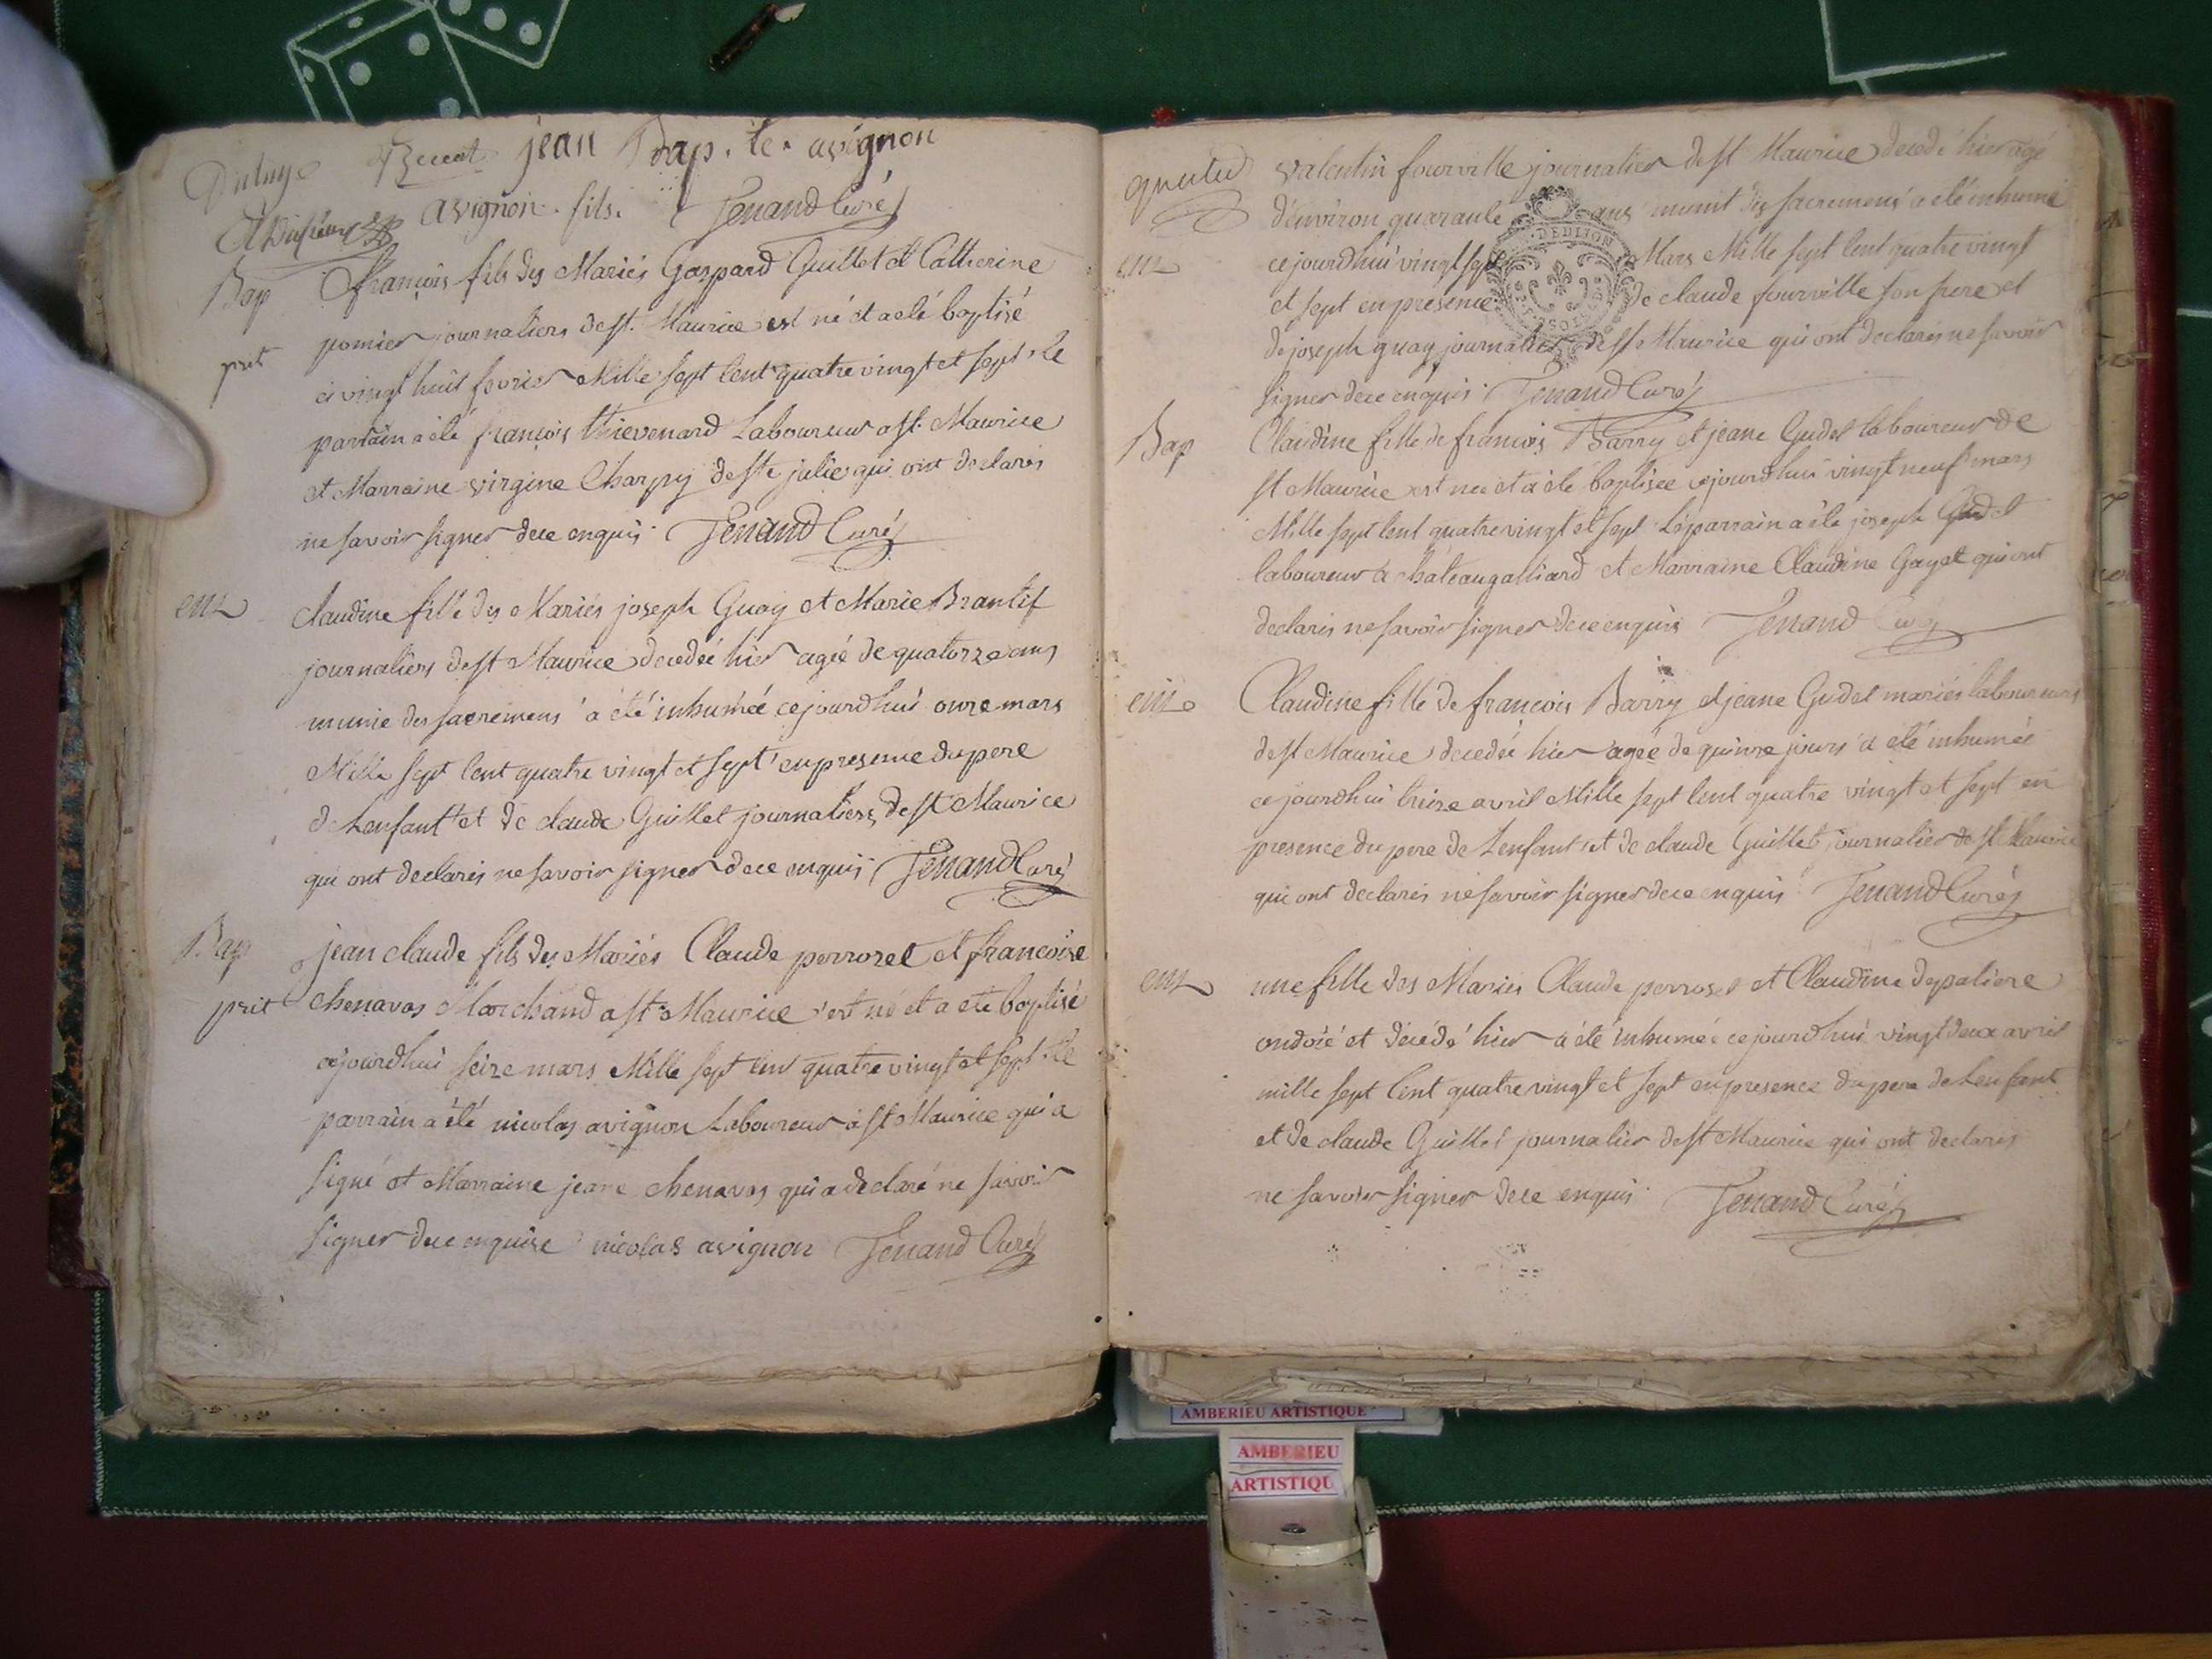 jean Bap. te. avignon
avignon. fils. Jenand Curé
Bap
françois fils des Mariés Gaspard Guillet et Catherine
pomier journaliers de st. Maurice est né et a eté baptisé
prit
vingt huit fevrier Mille sept Cent quatre vingt et sept. le
parrain a été françois thievenard Laboureur a st. Maurice
et Marraine virgine Charpy de ste julie qui ont declarés
ne savoir signer de ce enquis. Jenand Curé
ent
claudine fille des Mariés joseph Guay et Marie Brantif
journaliers de st Maurice decedée hier agée de quatorze ans
munie des sacremens a été inhumée cejourdhui onze mars
Mille sept Cent quatre vingt et sept en presence du pere
de Lenfant et de claude Guillet journaliers de st Maurice
qui ont declarés ne savoir signer de ce enquis Jenand Curé
Bap
jean claude fils des Mariés Claude perrozet et francoise
prit
chenavas Marchand a st Maurice est né et a eté baptisé
cejourdhui seize mars Mille sept Cent quatre vingt et sept. Le
parrain a été nicolas avignon Laboureur a st Maurice qui a
signé et Marraine jeane chenavas qui a declaré ne savoir
signer de ce enquise nicolas avignon Jenand Curé
valentin fourville journalier de st Maurice decedé hier agé
d'environ quarante ans munit des sacremens a été inhumé
DEDIJON
ent
cejourdhui vingt sept Mars Mille sept Cent quatre vingt
et sept en presence de claude fourville son frere et
de joseph guay journalier de st Maurice qui ont declarés ne savoir
signer de ce enquis. Jenand Curé
Bap
Claudine fille de francois Barry et jeane Gudet laboureur de
st Maurice est née et a été baptisée cejourdhui vingt neuf mars
Mille sept Cent quatre vingt et sept Le parrain a été joseph Gudet
laboureur a chateaugalliard et Marraine Claudine Gayet qui ont
declarés ne savoir signer de ce enquis Jenand Curé
ent
Claudine fille de francois Barry et jeane Gudet mariés laboureurs
de st Maurice decedée hier agée de quinze jours a été inhumée
cejourdhui treize avril Mille sept Cent quatre vingt et sept en
presence du pere de Lenfant et de claude Guillet journalier de st Maurice
qui ont declarés ne savoir signer de ce enquis Jenand Curé
ent
une fille des Mariés Claude perroset et Claudine depaliere
ondoié et décédé hier a été inhumée cejourdhui vingt deux avril
mille sept Cent quatre vingt et sept en presence du pere de Lenfant
et de claude Guillet journalier de st Maurice qui ont declarés
ne savoir signer de ce enquis Jenand Curé
AMBERIEU ARTISTIQUE
AMBERIEU
ARTISTIQU